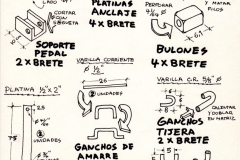 LADO
CORTAR
CON
SOPORTE
PEDAL
2 x BRETE
PLATINAS
ANCLAJE
4 x BRETE
PERFORAR
Y MATAR
FILOS
BULONES
4 x BRETE
PLATINA 1/2" x 2"
75
2
UNIDADES
VARILLA CORRIENTE
Ø 1/2"
2 UNIDADES
GANCHOS
DE
AMARRE
VARILLA C.R. 5/8"
CALENTAR
Y DOBLAR
EN MATRIZ
GANCHOS
TIJERA
2 x BRETE